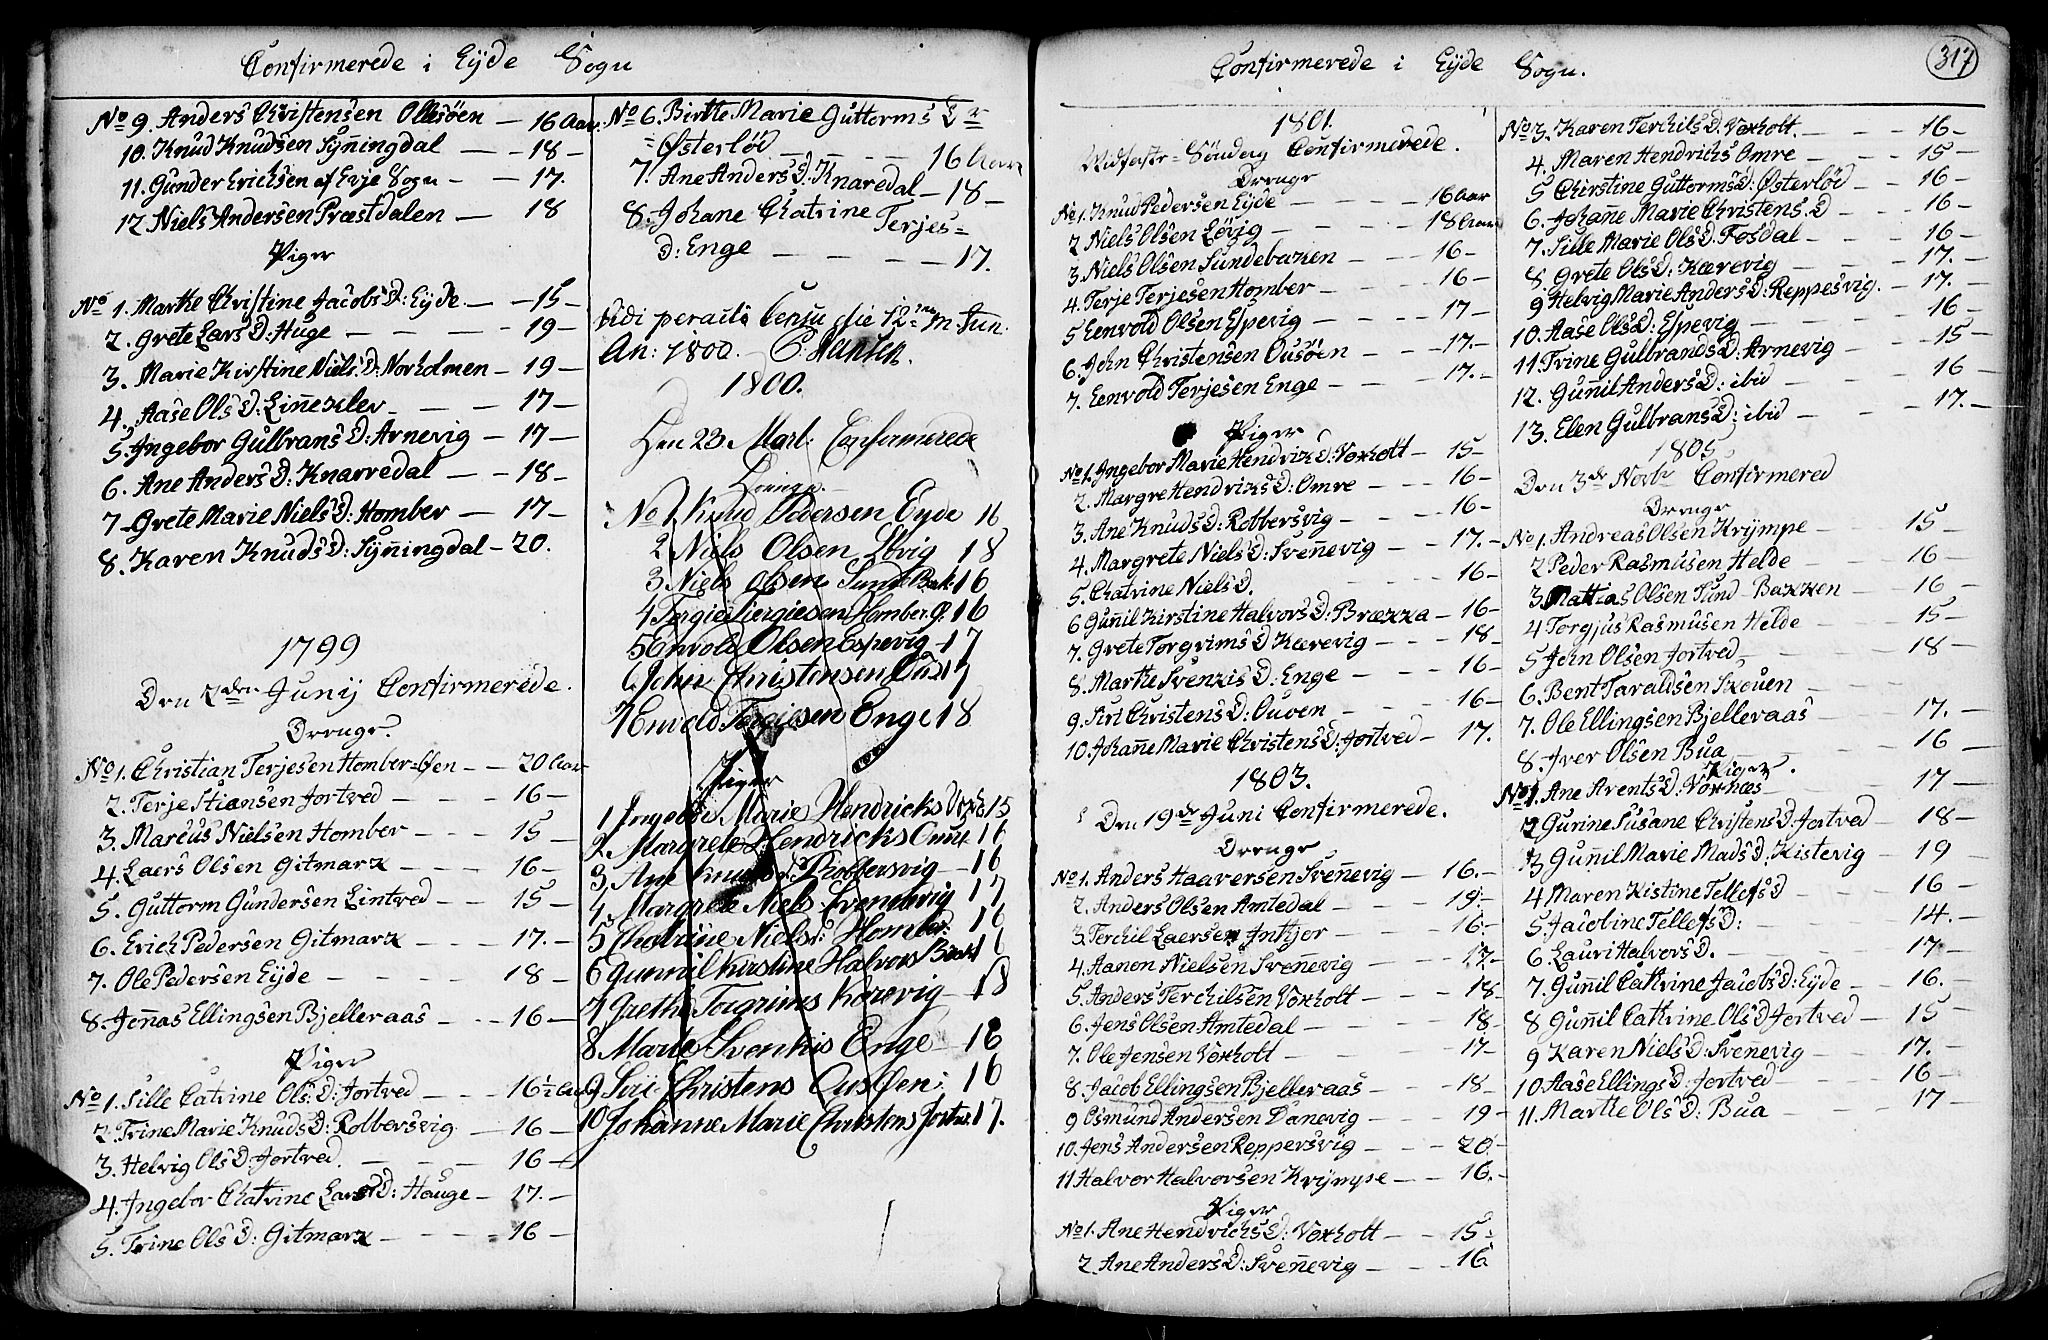 Confirmerede i Eyde Sogn
No 9. Anders Christensen Ollesöen — 16 Aar
10. Knud Knudsen Synningdal — 18 —
11. Gunder Erichsen af Evje Sogn — 17.
12. Niels Andersen Præstdalen — 18
Piger
No 1. Marthe Christine Jacobs D: Eyde — 15 —
2. Grete Lars D: Huge — 19 —
3. Marie Kirstine Niels D: Norholmen — 19 —
4. Aase Ols D: Linneklev — 17 —
5. Ingebor Gulbrans D: Arnevig — 17 —
6. Ane Anders D: Knarredal — 18 —
7 Grete Marie Niels D: Homber — 17 —
8. Karen Knuds D: Synningdal — 20.
1799
Den 2den Junij Confirmerede.
Drenge.
No 1. Christian Terjesen Homber=Öen — 20 Aar
2. Terje Stiansen Jortved — 16 —
3. Marcus Nielsen Homber — 15 —
4. Laers Olsen Gitmark — 16 —
5. Guttorm Gundersen Lintved — 15 —
6. Erich Pedersen Gitmark — 17. —
7. Ole Pedersen Eijde — 18 —
8. Jonnas Ellingsen Bjelleraas — 16 —
Piger
No 1. Sille Catrine Ols D: Jortved — 16½ Aar
2. Trine Marie Knuds D: Robbersvig — 16 —
3. Helvig Ols D: Jortved — 16 —
4. Ingebor Chatrine Lars D: Houge — 17. —
5. Trine Ols D: Gitmark — 16 —
No 6. Birthe Marie Guttorms Dr
=Østerlöd — 16 Aar
7. Ane Anders D: Knaredal — 18 —
8. Johane Chatrine Terjes=
D: Enge — 17.
Vidi peracto Censu die 12mo m. Jun.
An: 1800. —
1800.
Den 23 Mart. Confirmerede
Drenge
No 1 Knud Pedersen Eyde 16
2 Niels Olsen Lövig 18
3 Niels Olsen Sundebak 16
4 Tergie Tergiesen Homber Ø. 16
5 Envold Olsen Espevig 17
6 John Christensen Ous 17
7 Envold Tergiesen Enge 18
Piger
1 Ingebor Marie Hendricks Voxh 15
2 Margrete Hendricks Omre 16
3 Ane Knuds D. Robbersvig — 16
4 Margrete Niels Svennevig 17
5 Chatrine Nielsd: Homber: 16
6 Gunnil Kirstine Halvors Bræk 16
7 Grethe Torgrims Korevig — 18
8 Marte Svenkis Enge — 16
9 Siri Christens Ous Öen: 16
10 Johanne Marie Christens Jortved 17.
Confirmerede i Eyde Sogn.
317
1801.
Midfaste=Söndag Confirmerede.
Drenge
No 1. Knud Pedersen Eyde — 16 Aar
2 Niels Olsen Lövig — 18 Aar
3 Niels Olsen Sundebaken — 16 —
4. Terje Terjesen Homber — 16 —
5 Eenvold Olsen Espevig — 17 —
6. John Christensen Ousöen — 17. —
7. Eenvold Terjesen Enge — 17. —
Piger
No 1. Ingebor Marie Hendrik D: Voxholt — 15 —
2. Margre Hendriks D: Omre — 16 —
3. Ane Knuds D: Robbersvig — 16 —
4. Margrete Niels D: Svennevig — 17. —
5. Chatrine Niels D. — 16 —
6 Gunil Kirstine Halvors D: Brækka — 16 —
7. Grete Torgrims D Kærevig — 18 —
8. Marthe Svenkis D: Enge — 16 —
9. Siri Christens D: Ouöen — 16 —
10. Johanne Marie Christens D: Jortved — 17.
1803.
Den 19de Juni Confirmerede.
Drenge
No 1. Anders Haaversen Svennevig — 16. —
2. Anders Olsen Amtedal — 19. —
3. Terchil Laersen Inthjor — 16 —
4. Aanon Nielsen Svennevig — 17. —
5. Anders Terchilsen Voxholt — 18 —
6. Jens Olsen Amtedal — 18 —
7. Ole Jensen Voxholt — 17 —
8. Jacob Ellingsen Bjelleraas — 18 —
9 Osmund Andersen Danevig — 19 —
10. Jens Andersen Reppersvig — 20 —
11 Halvor Halvorsen Krympe — 16. —
Piger
No 1. Ane Hendrichs D: Voxholt — 15 —
2. Ane Anders D: Svennevig — 16
No 3. Karen Terchils D. Voxholt. — 16 —
4. Maren Hendrichs Omre — 15 —
5 Chirstine Guttorms D: Østerlöd — 16 —
6. Johanne Marie Christens. D — 16 —
7. Sille Marie Ols D: Fosdal — 16 —
8. Grete Ols D. Kærevig — 17. —
9 Helvig Marie Anders D: Reppesvig. — 17. —
10. Aase Ols D: Espevig — 16 —
11 Trine Gulbrands D: Arnevig — 15 —
12. Gunnil Anders D: ibid — 16 —
13. Elen Gulbrans D: ibid — 17. —
1805
Den 3de Novbr Confirmered
Drenge
No 1. Andreas Olsen Krympe — 15 —
2 Peder Rasmusen Helde — 16 —
3. Mattias Olsen Sund-Bakken — 16 —
4 Torgjus Rasmusen Helde — 15 —
5 John Olsen Jortved — 18 —
6. Bent Taraldsen Skouen —
7. Ole Ellingsen Bjelleraas — 17. —
8. Iver Olsen Bua — 16 —
Piger.
No 1. Ane Arents D: Voxnæs — 17 —
2 Gurine Susane Christens D: Jortved — 18 —
3 Gunnil Marie Mads D. Kistevig — 19 —
4 Maren Kistine Tellefs D — 16 —
5 Jacobine Tellefs D: — 14. —
6. Lauri Halvors D. — 17 —
7. Gunnil Cathrine Jacobs D: Eyde — 16. —
8 Gunnil Cathrine Ols D Jortved — 15 —
9 Karen Niels D: Svennevig — 17. —
10. Aase Ellings D: Jortved — 16 —
11. Marthe Ols D: Bua — 17 —